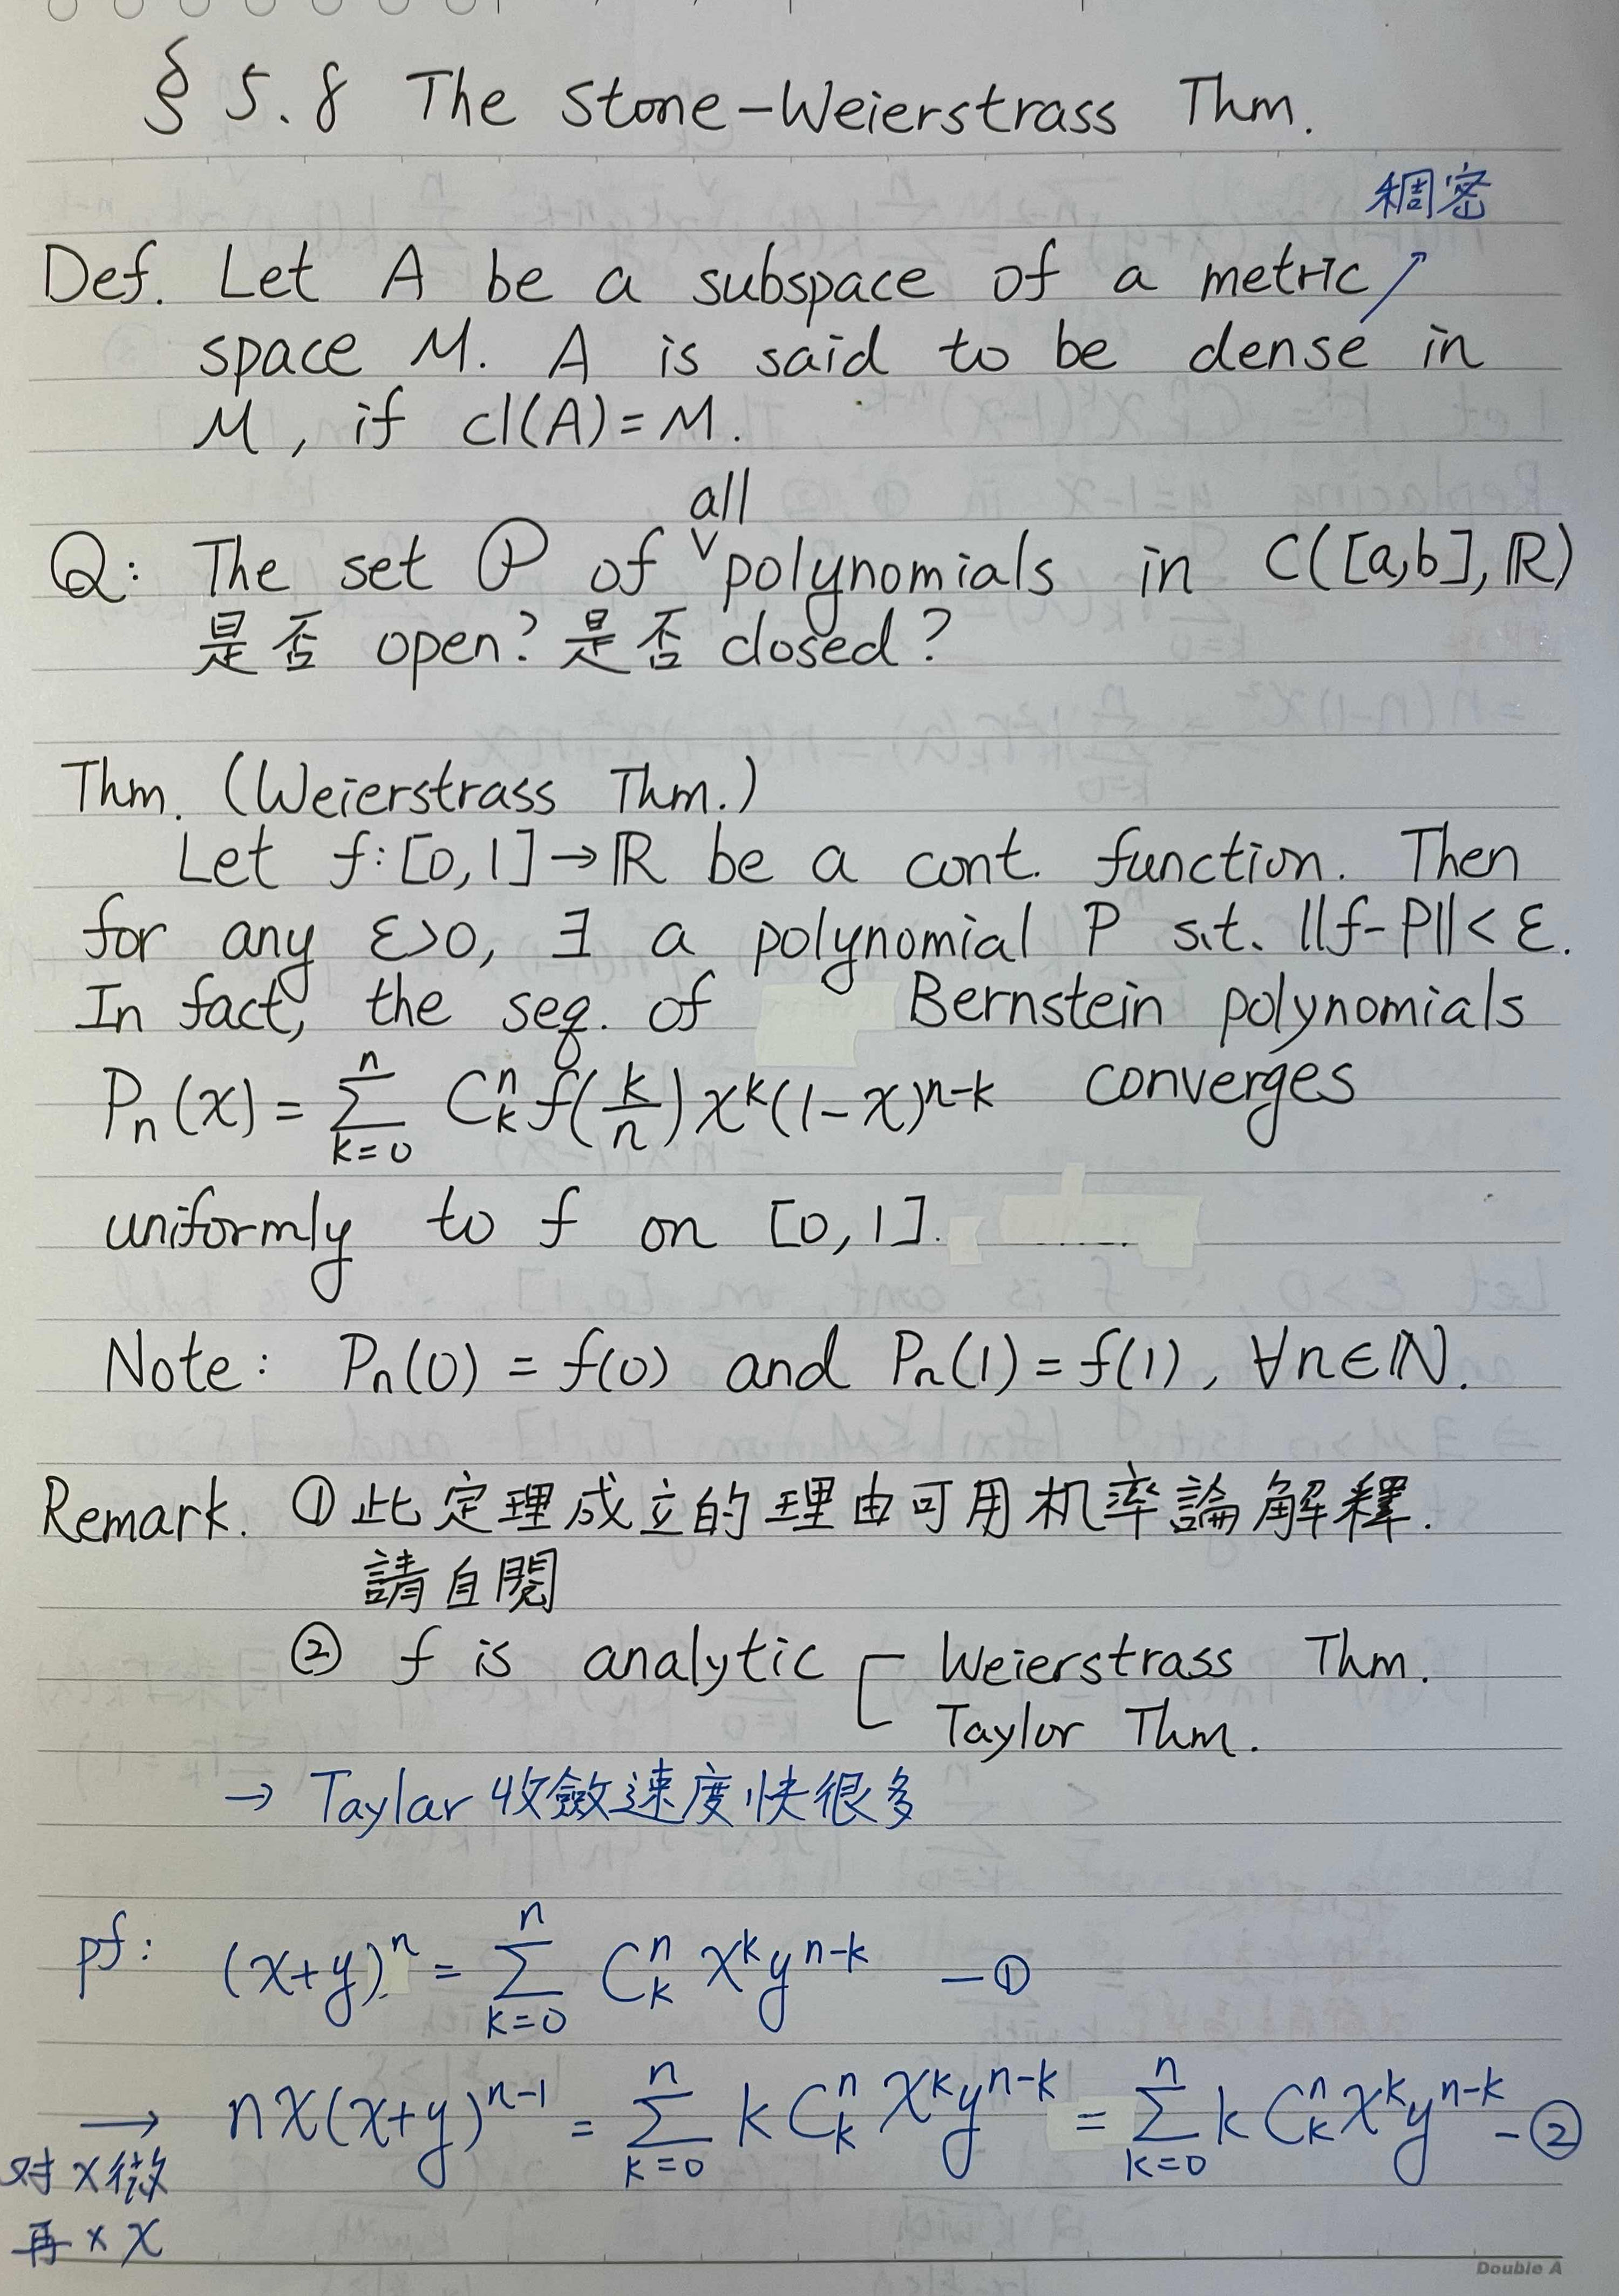 § 5.8 The Stone-Weierstrass Thm.
稠密
Def. Let A be a subspace of a metric
space M. A is said to be dense in
M, if cl(A)=M.
all
Q: The set P of ∨polynomials in C([a,b],ℝ)
是否 open? 是否 closed?
Thm. (Weierstrass Thm.)
Let f:[0,1]→ℝ be a cont. function. Then
for any ε>0, ∃ a polynomial P s.t. ||f-P||<ε.
In fact, the seq. of Bernstein polynomials
Pₙ(x) = Σ_{k=0}^{n} C_k^n f(k/n) x^k (1-x)^{n-k} converges
uniformly to f on [0,1].
Note: Pₙ(0) = f(0) and Pₙ(1) = f(1), ∀n∈ℕ.
Remark. ① 此定理成立的理由可用机率論解釋.
請自閱
② f is analytic [ Weierstrass Thm.
Taylor Thm.
→ Taylar 收斂速度快很多
pf: (x+y)^n = Σ_{k=0}^{n} C_k^n x^k y^{n-k} —①
→ nx(x+y)^{n-1} = Σ_{k=0}^{n} k C_k^n x^k y^{n-k} = Σ_{k=0}^{n} k C_k^n x^k y^{n-k} -②
对 x 微
再 × x
Double A